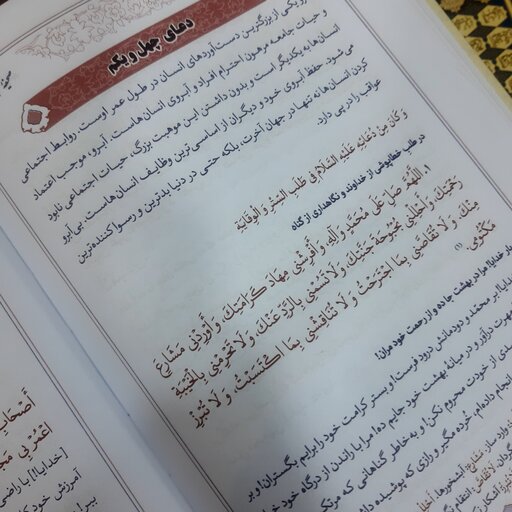 دعای چهل و یکم
یکی از بزرگترین دست‌آوردهای انسان در طول عمر اوست. روابط اجتماعی
و حیات جامعه مرهون احترام افراد و آبروی انسان‌هاست. آبرو، موجب اعتماد
انسان‌ها به یکدیگر است و بدون داشتن این موهبت بزرگ، حیات اجتماعی نابود
می‌شود. حفظ آبروی خود و دیگران از اساسی‌ترین وظایف انسان‌هاست. بی‌آبرو
کردن انسان‌ها نه تنها در جهان آخرت، بلکه حتی در دنیا بدترین و رسوا کننده‌ترین
عواقب را در پی دارد.
وَ كَانَ مِنْ دُعَائِهِ عَلَيْهِ السَّلَامُ فِي طَلَبِ السِّتْرِ وَ الْوِقَايَةِ
در طلب خطاپوشی از خداوند و نگاهداری از گناه
۱. اللَّهُمَّ صَلِّ عَلَى مُحَمَّدٍ وَ آلِهِ، وَ أَفْرِشْنِي مِهَادَ كَرَامَتِكَ، وَ أَوْرِدْنِي مَشَارِعَ
رَحْمَتِكَ، وَ أَحْلِلْنِي بُحْبُوحَةَ جَنَّتِكَ، وَ لَا تَسُمْنِي بِالرَّدِّ عَنْكَ، وَ لَا تَحْرِمْنِي بِالْخَيْبَةِ
مِنْكَ. وَ لَا تُقَاصَّنِي بِمَا اجْتَرَحْتُ، وَ لَا تُنَاقِشْنِي بِمَا اكْتَسَبْتُ، وَ لَا تُبْرِزْ
مَكْتُومِي، (۱)
بار خدایا! مرا در بهشت جا ده و از رحمت خود مران!
خدایا! بر محمد و دودمانش درود فرست! و بستر کرامت خود را برایم بگستران! و بر
درآور و در میانه بهشت خود جایم ده! مرا با راندن از درگاه خود
از خودت محروم نکن! و به خاطر گناهانی که مرتکب
انجام داده‌ام، خرده مگیر و رازی که پوشیده
أَصْحَابِ
[خدایا!] با راضی
آمرزش خود